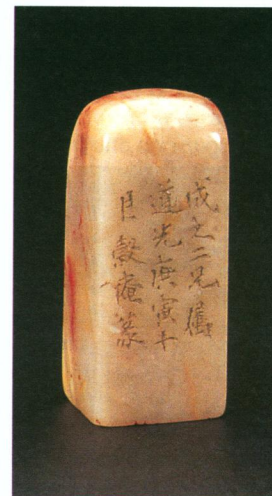 成之二兄屬
道光庚寅十
月穀庵篆